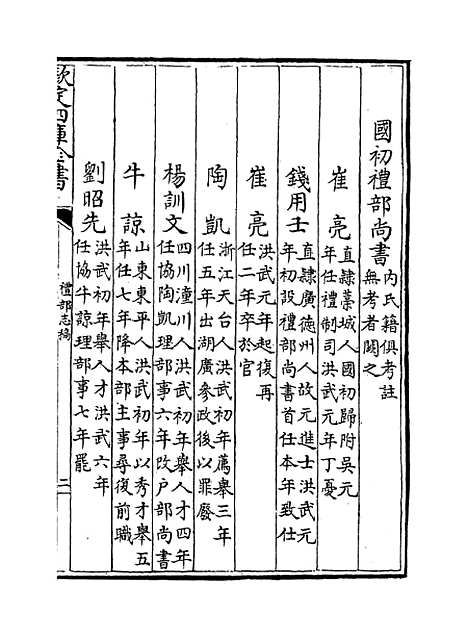 國初禮部尚書内氏籍俱考註
無考者闕之
崔亮直隸藁城人國初歸附吳元
年任禮制司洪武元年丁憂
錢用壬直隸廣德州人故元進士洪武元
年初設禮部尚書首任本年致仕
崔亮洪武元年起復再
任二年卒於官
陶凱浙江天台人洪武初年薦舉三年
任五年出湖廣參政後以罪廢
楊訓文四川潼川人洪武初年舉人才四年
任協陶凱理部事六年改户部尚書
牛諒山東東平人洪武初年以秀才舉五
年任七年降本部主事尋復前職
劉昭先洪武初年舉人才洪武六年
任協牛諒理部事七年罷
欽定四庫全書
禮部志稿
二